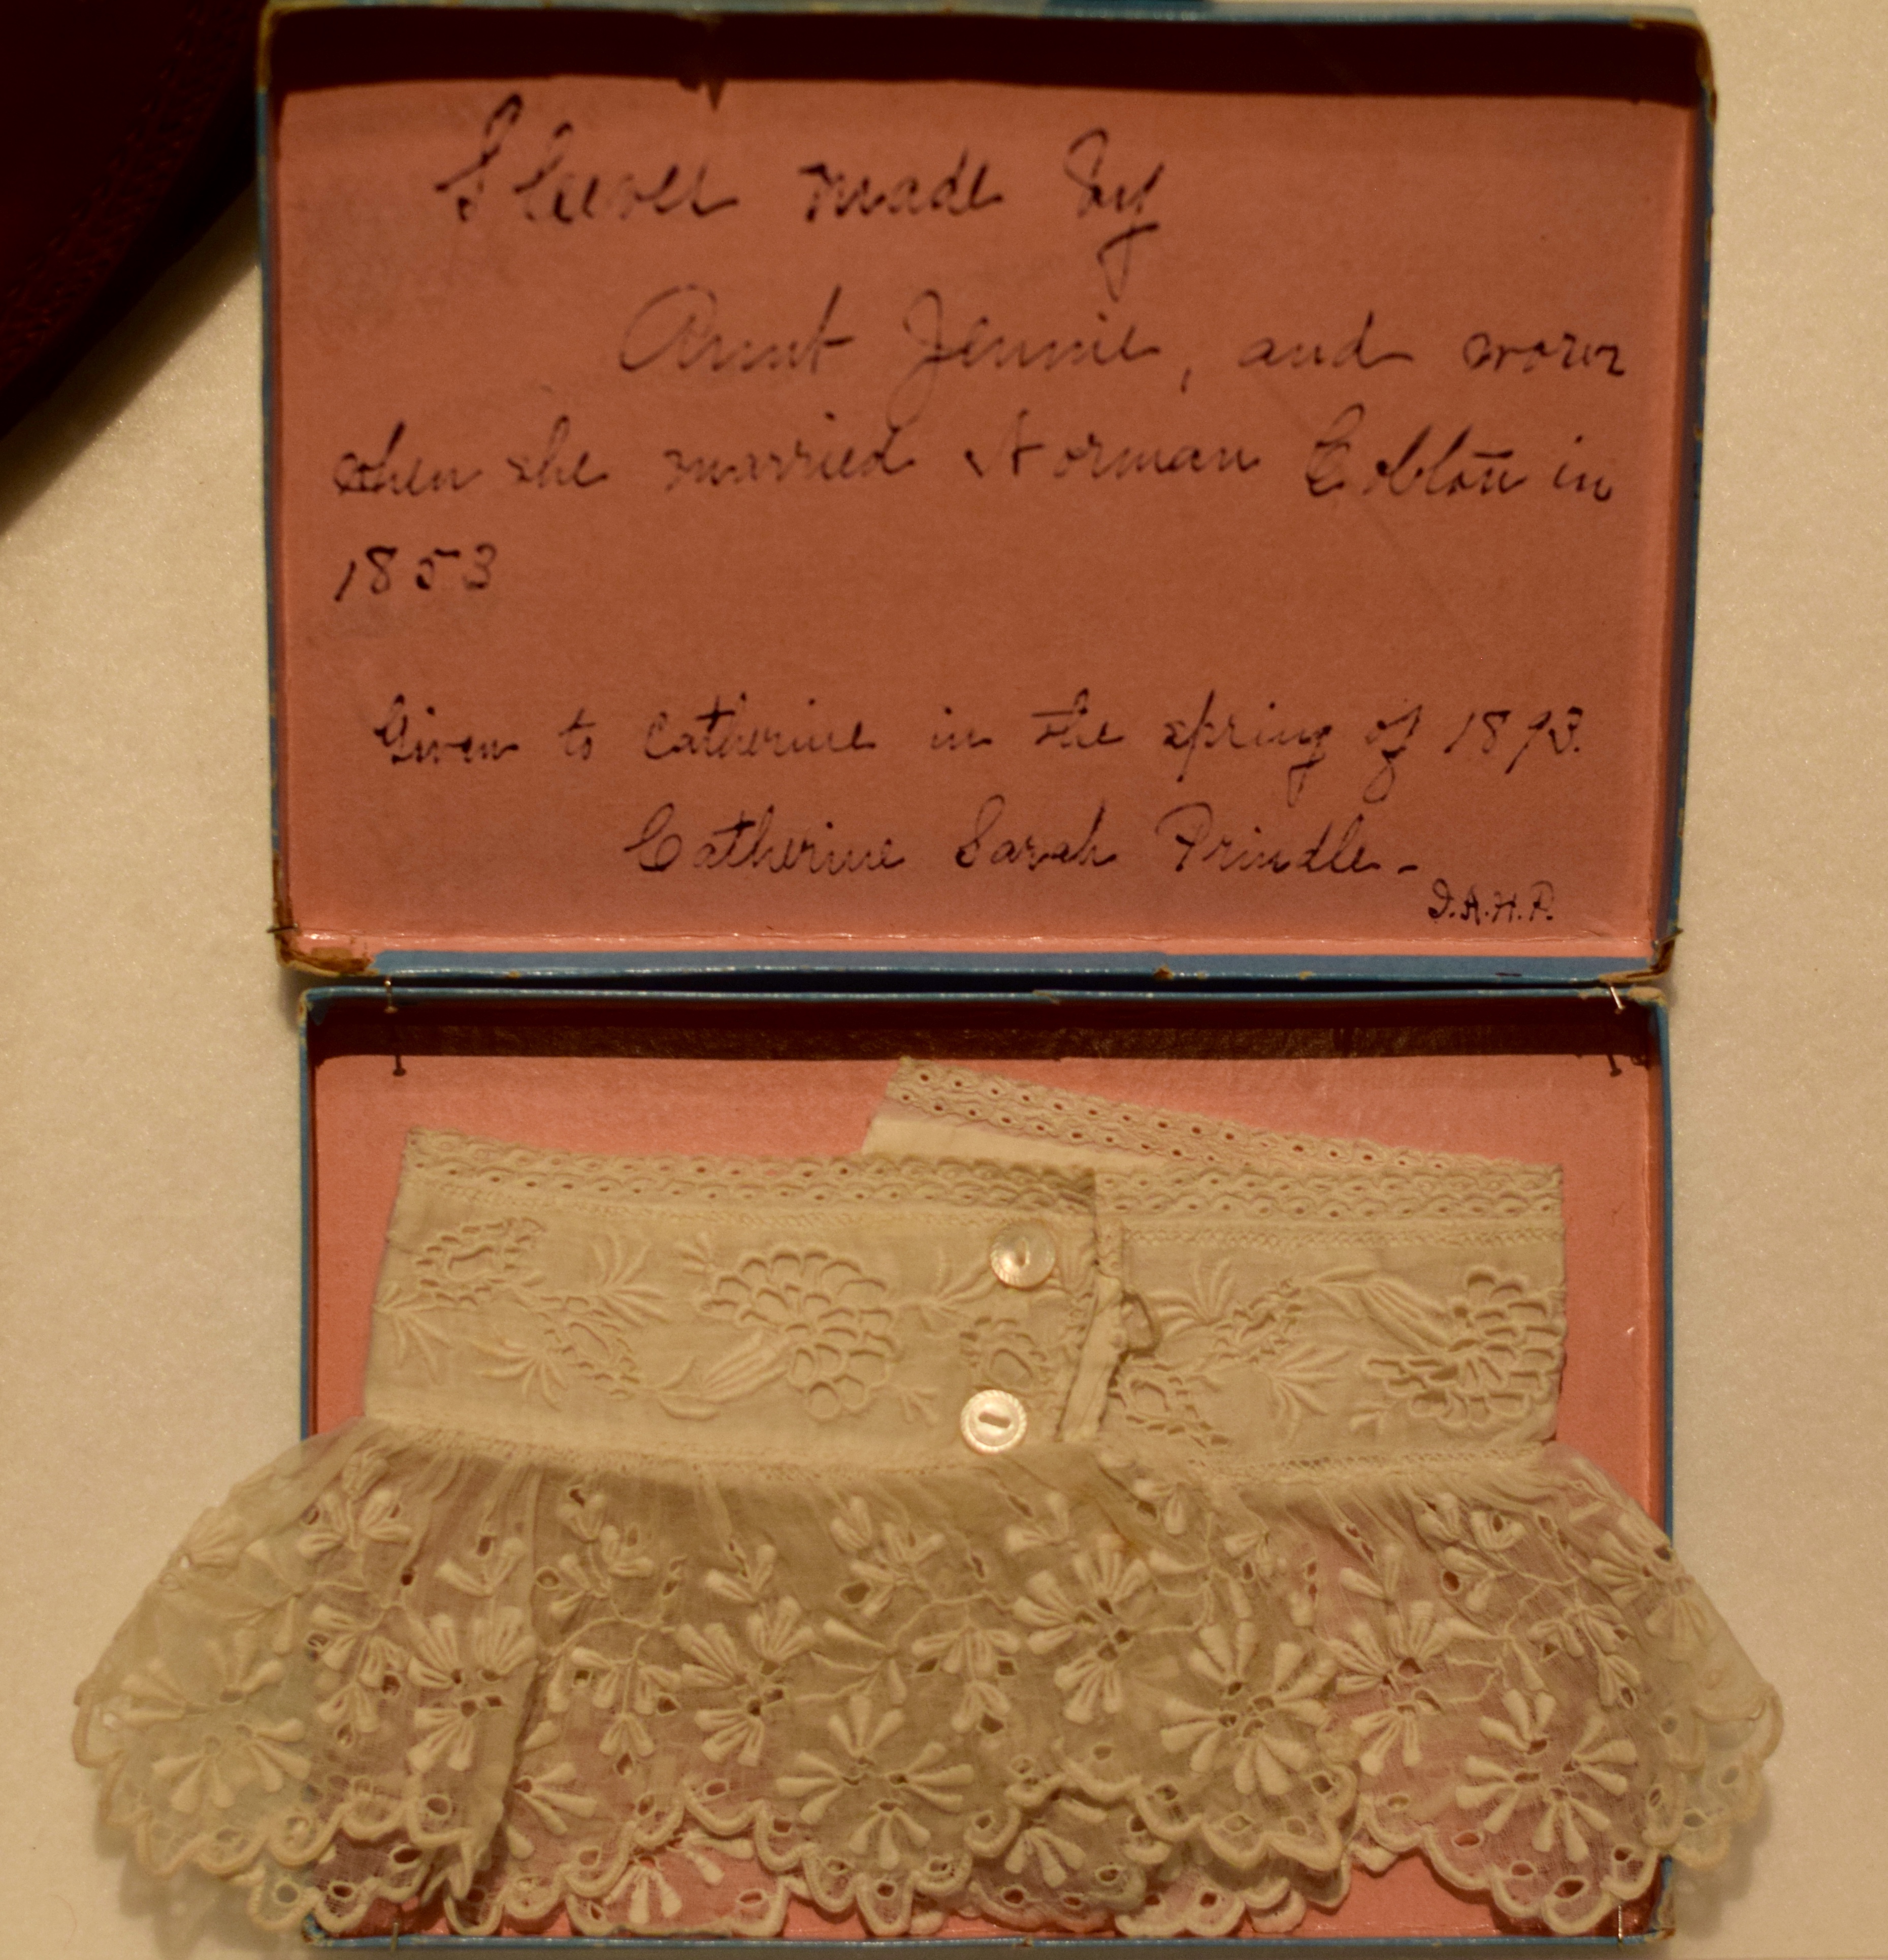 Sleeves made by
Aunt Jennie, and worn
when she married Norman in
1853
Given to Catherine in the spring of 1893.
Catherine Sarah Prindle -